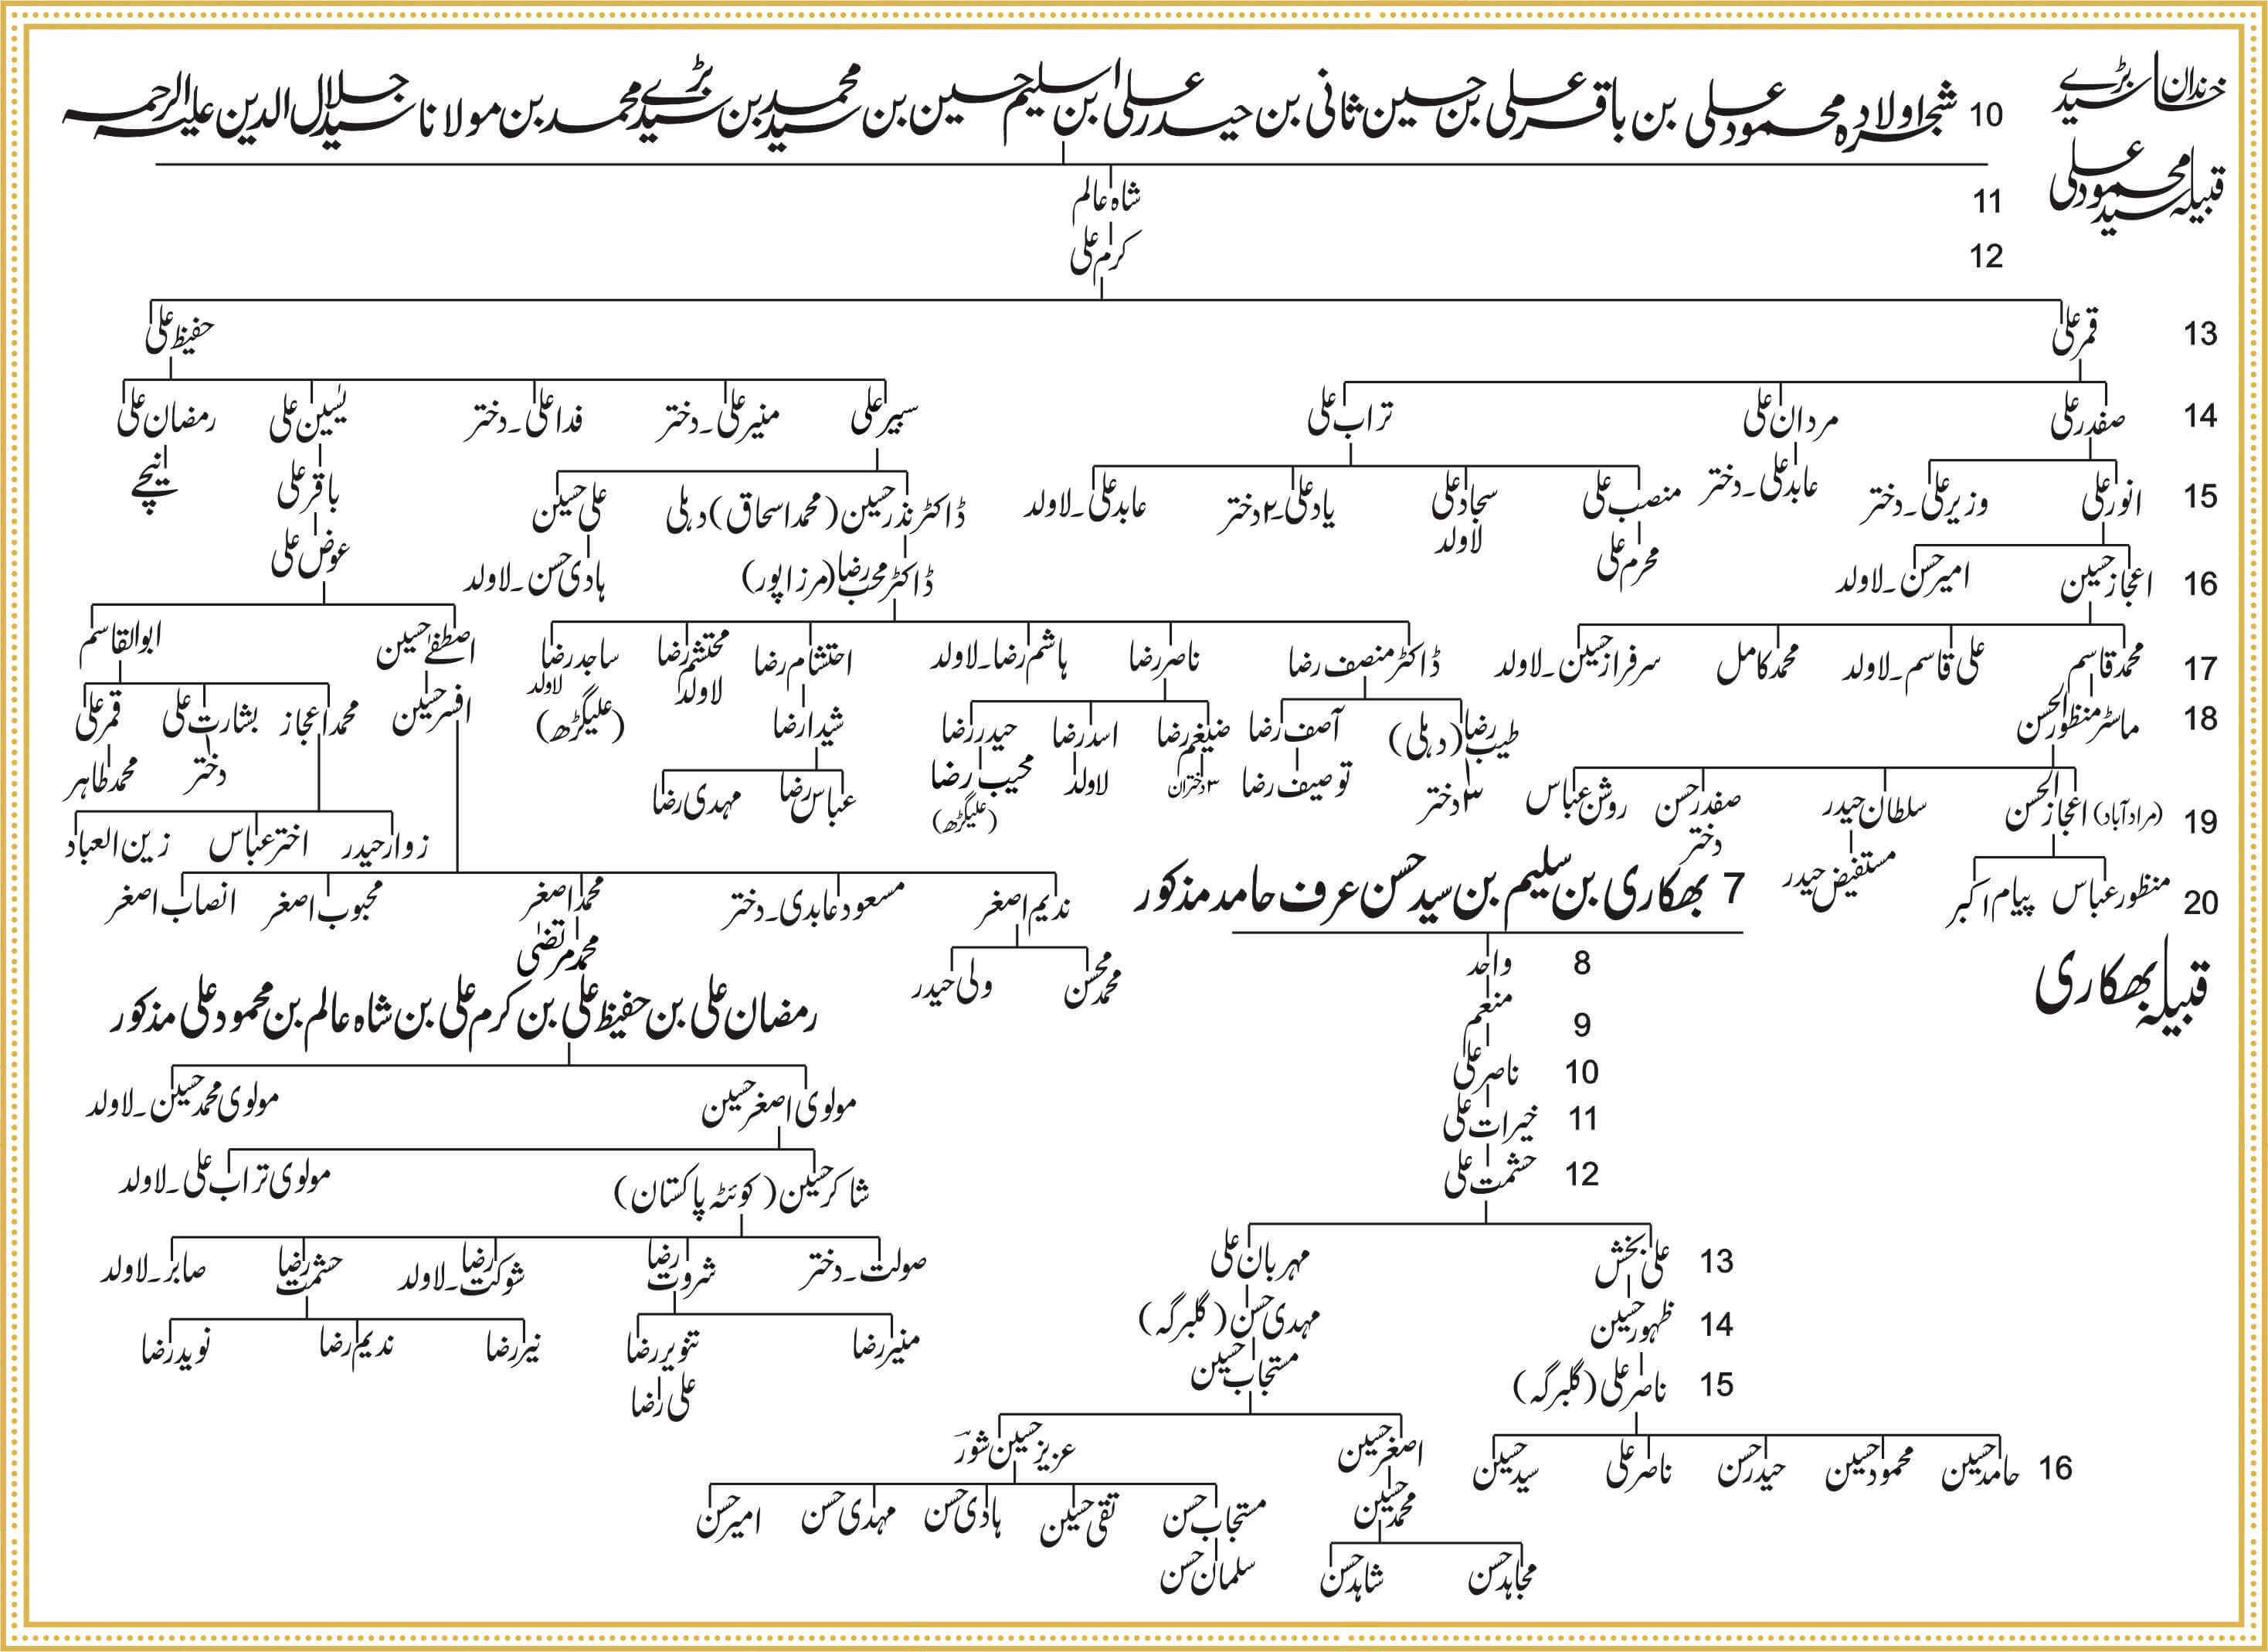 خاندان سید بڑے
10 شجرہ اولاد محمود علی بن باقر علی بن حسین ثانی بن حیدر علی ابن سلیم حسین بن سید محمد بن سید بڑے محمد بن مولانا سید جلال الدین علیہ الرحمہ
قبیلہ سید محمود علی
11 شاہ عالم
12 کرم علی
13 قمر علی حفیظ علی
14 صفدر علی مردان علی تراب علی سبیر علی منیر علی۔دختر فدا علی۔دختر یٰسین علی رمضان علی
15 انور علی وزیر علی۔دختر عابد علی۔دختر منصب علی سجاد علی یاد علی۔۲دختر عابد علی۔لاولد ڈاکٹر نذر حسین (محمد اسحاق) دہلی علی حسین باقر علی نیچے
لاولد
16 اعجاز حسین امیر حسن۔لاولد محرم علی ڈاکٹر محب رضا (مرزاپور) ہادی حسن۔لاولد عوض علی
17 محمد قاسم علی قاسم۔لاولد محمد کامل سرفراز حسین۔لاولد ڈاکٹر منصف رضا ناصر رضا ہاشم رضا۔لاولد احتشام رضا محتشم رضا ساجد رضا اصطفےٰ حسین ابوالقاسم
لاولد لاولد
(علیگڑھ)
18 ماسٹر منظور الحسن طیب رضا (دہلی) آصف رضا ضیغم رضا اسد رضا حیدر رضا شیدا رضا افسر حسین محمد اعجاز بشارت علی قمر علی
۳دختر توصیف رضا ۳دختران لاولد محیب رضا عباس رضا مہدی رضا دختر محمد طاہر
(علیگڑھ)
19 (مرادآباد) اعجاز الحسن سلطان حیدر صفدر حسن روشن عباس زوار حیدر اختر عباس زین العباد
دختر
20 منظور عباس پیام اکبر مستفیض حیدر ندیم اصغر مسعود عابدی۔دختر محمد اصغر محبوب اصغر انصاب اصغر
محمد محسن ولی حیدر محمد مرتضیٰ
قبیلہ بھکاری
7 بھکاری بن سلیم بن سید حسن عرف حامد مذکور
8 واحد
9 منعم
10 ناصر علی
11 خیرات علی
12 حشمت علی
13 علی بخش مہربان علی
14 ظہور حسین مہدی حسن (گلبرگہ)
15 ناصر علی (گلبرگہ) مستجاب حسین
16 حامد حسین محمود حسین حیدر حسن ناصر علی سید حسین اصغر حسین عزیز حسین شورؔ
محمد حسین مستجاب حسن تقی حسین ہادی حسن مہدی حسن امیر حسن
مجاہد حسن شاہد حسن سلمان حسن
رمضان علی بن حفیظ علی بن کرم علی بن شاہ عالم بن محمود علی مذکور
مولوی اصغر حسین مولوی محمد حسین۔لاولد
شاکر حسین (کوئٹہ پاکستان) مولوی تراب علی۔لاولد
صولت۔دختر ثروت رضا شوکت رضا۔لاولد حشمت رضا صابر۔لاولد
منیر رضا تنویر رضا نیر رضا ندیم رضا نوید رضا
علی رضا